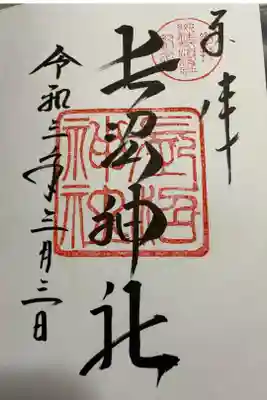 奉拝
長沼神社
令和三年三月三日
長沼神社